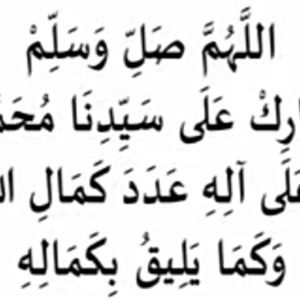 اللَّهُمَّ صَلِّ وَسَلِّمْ
ارِكْ عَلَى سَيِّدِنَا مُحَمَّ
عَلَى آلِهِ عَدَدَ كَمَالِ ال
وَكَمَا يَلِيقُ بِكَمَالِهِ